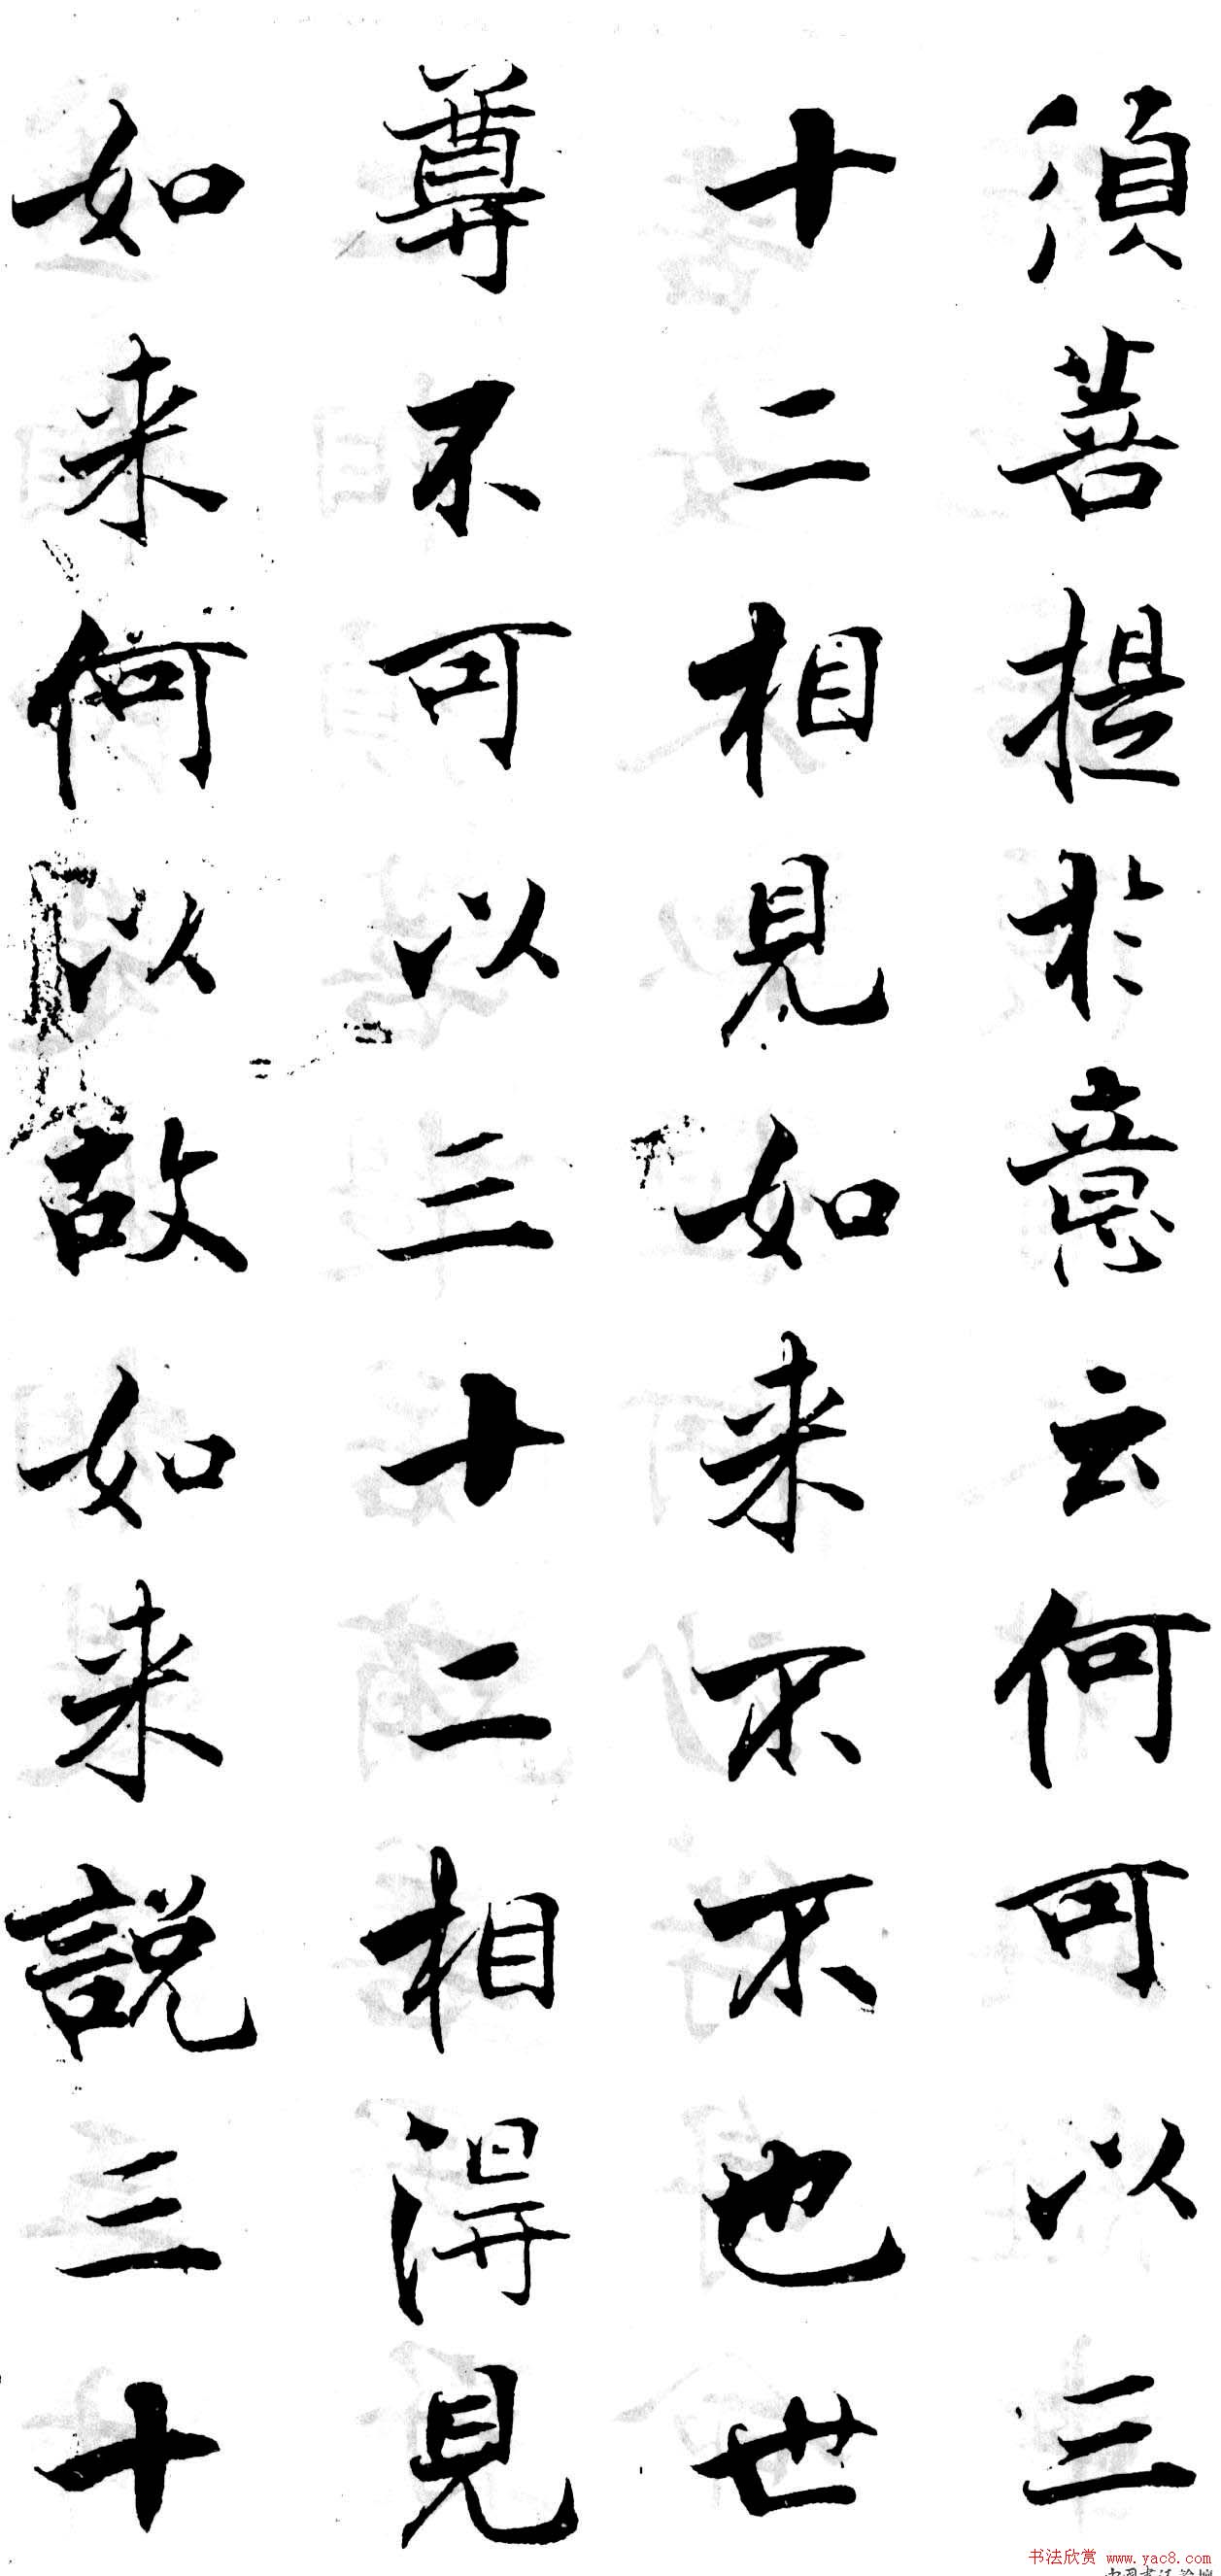 須菩提於意云何可以三
十二相見如来不不也世
尊不可以三十二相得見
如来何以故如来說三十
书法欣赏 www.yac8.com